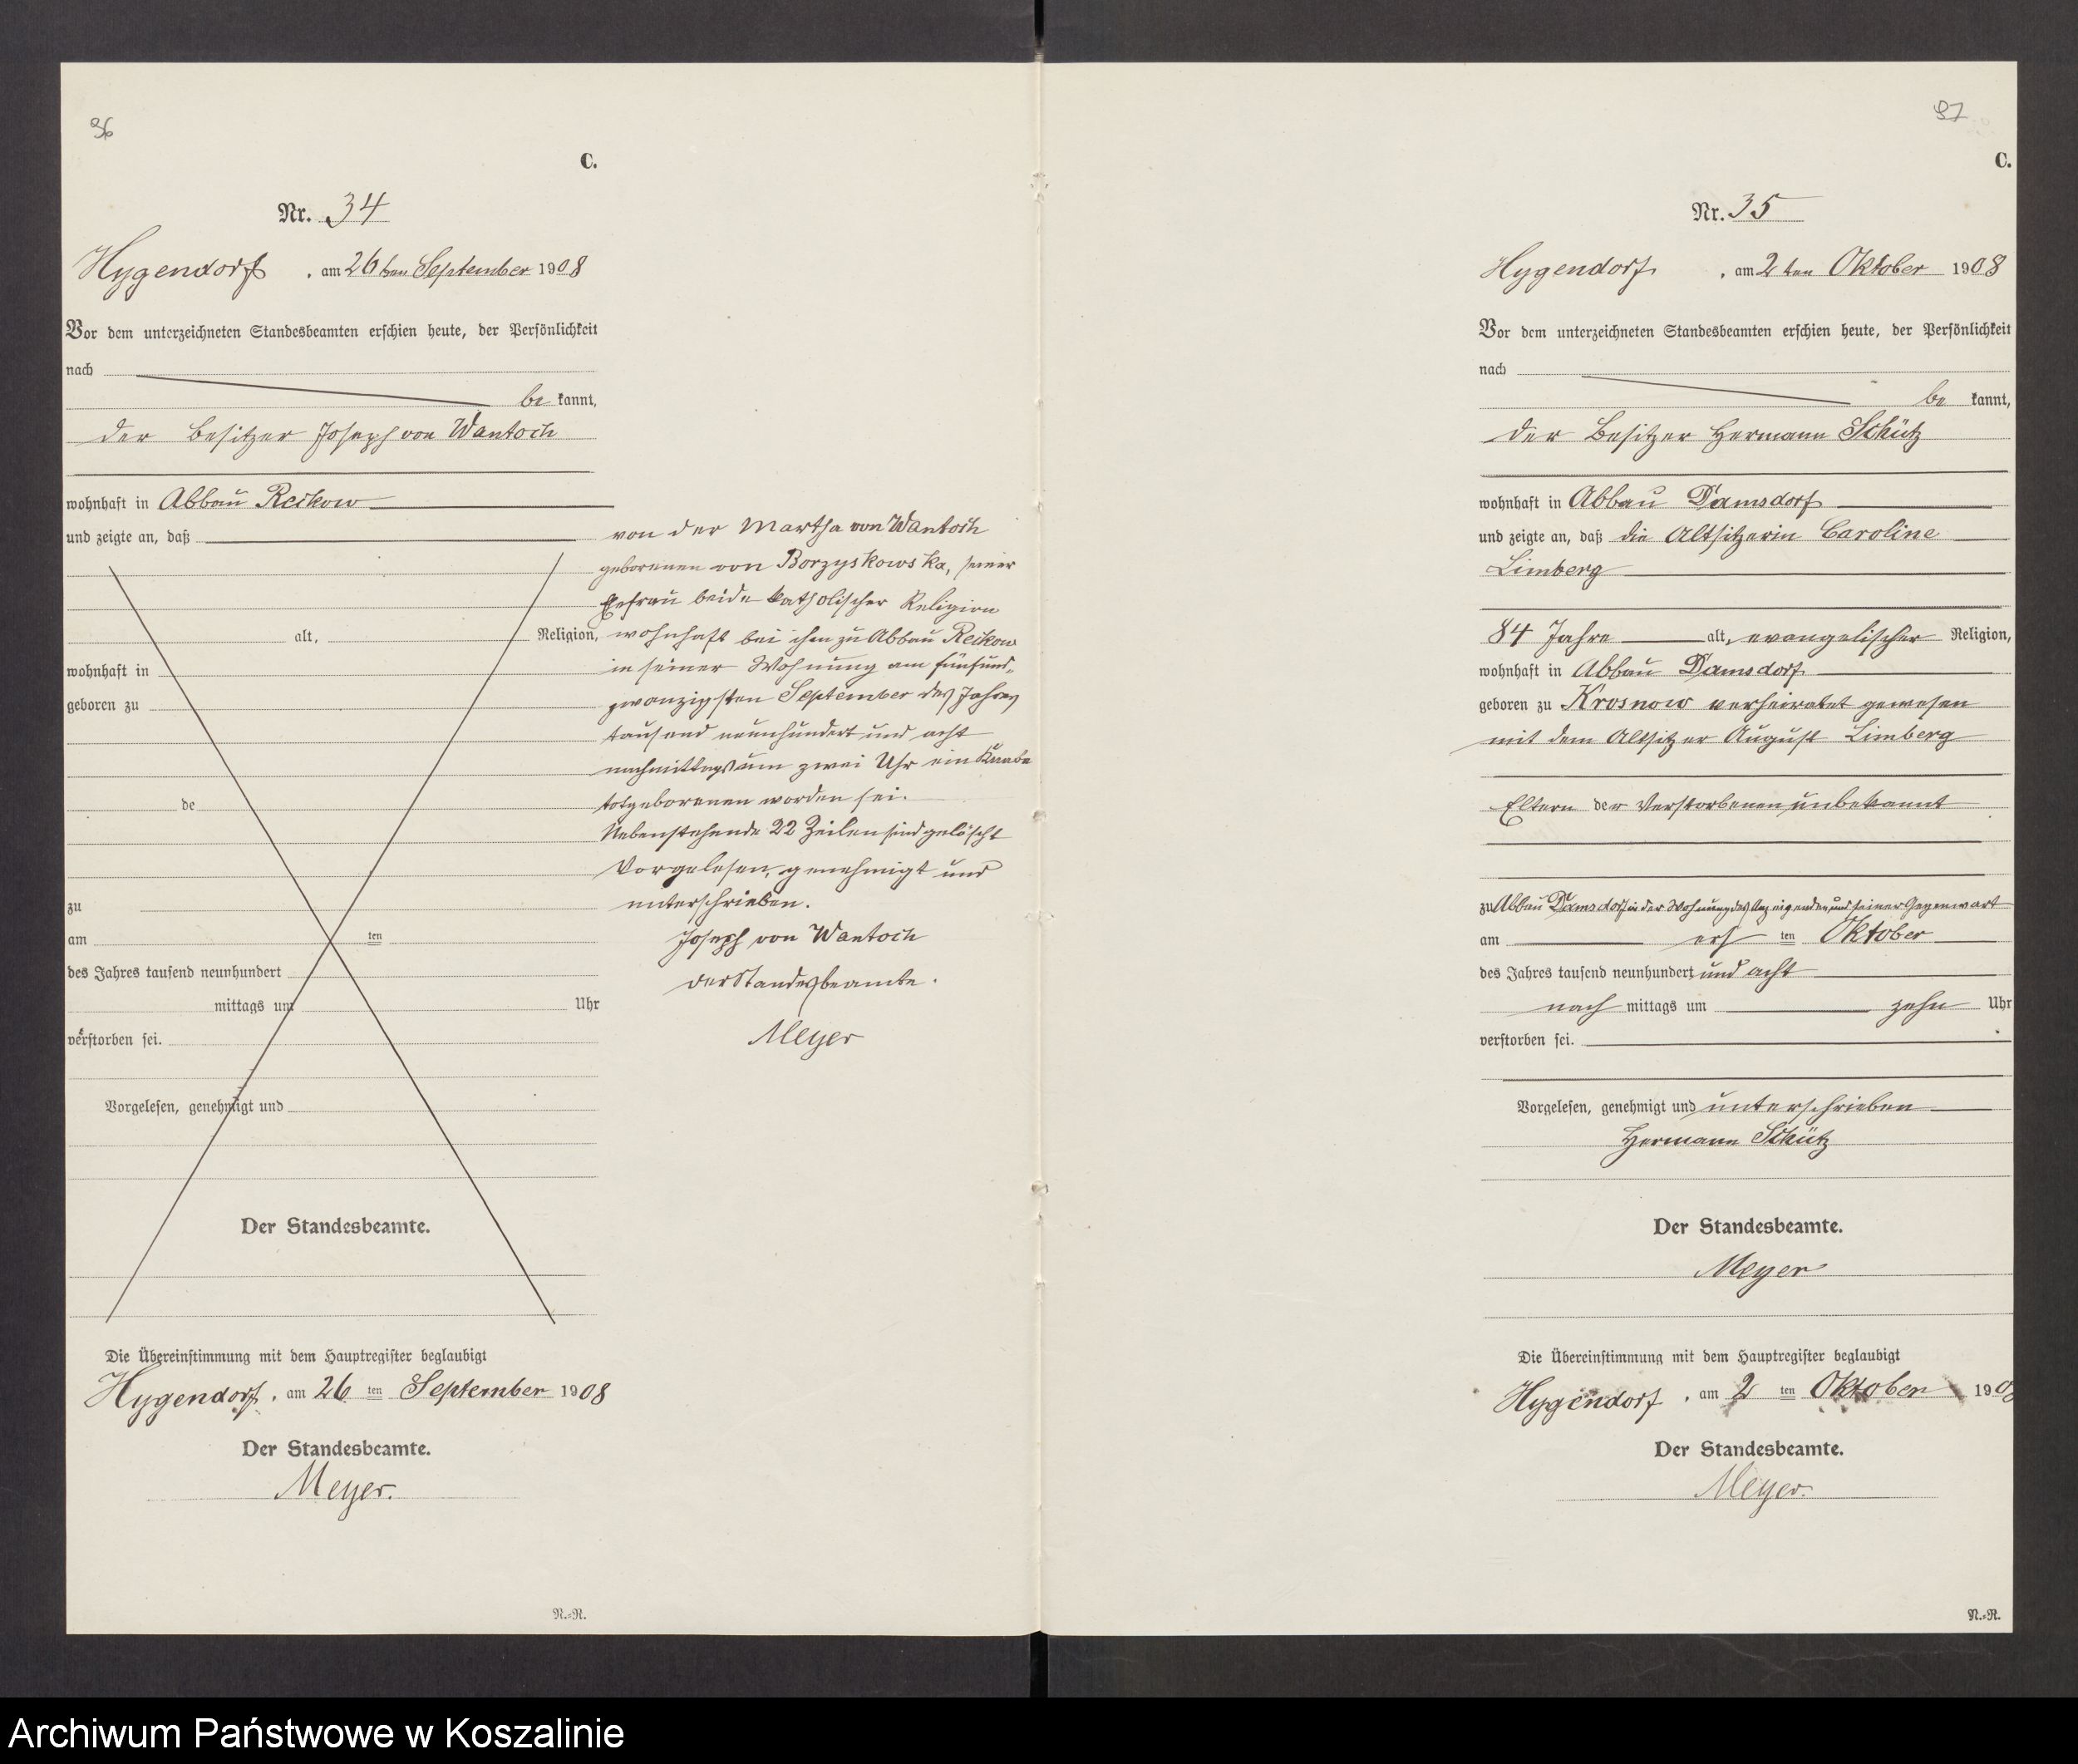 36
C.
Nr. 34
Hygendorf, am 26ten September 1908
Vor dem unterzeichneten Standesbeamten erschien heute, der Persönlichkeit
nach
be kannt,
der Besitzer Joseph von Wantoch
wohnhaft in Abbau Reckow
und zeigte an, daß
alt, Religion,
wohnhaft in
geboren zu
de
zu
am ten
des Jahres tausend neunhundert
mittags um Uhr
verstorben sei.
Vorgelesen, genehmigt und
Der Standesbeamte.
von der Martha von Wantoch
geborenen von Borzyskowska, seiner
Ehefrau beide katholischer Religion
wohnhaft bei ihm zu Abbau Reckow
in seiner Wohnung am fünfund-
zwanzigsten September des Jahres
tausend neunhundert und acht
nachmittags um zwei Uhr ein Knabe
totgeborenen worden sei.
Nebenstehende 22 Zeilen sind gelöscht
Vorgelesen, genehmigt und
unterschrieben.
Joseph von Wantoch
der Standesbeamte.
Meyer
Die Übereinstimmung mit dem Hauptregister beglaubigt
Hygendorf, am 26 ten September 1908
Der Standesbeamte.
Meyer.
N.=R.
37
C.
Nr. 35
Hygendorf, am 2ten Oktober 1908
Vor dem unterzeichneten Standesbeamten erschien heute, der Persönlichkeit
nach
be kannt,
der Besitzer Hermann Schütz
wohnhaft in Abbau Damsdorf
und zeigte an, daß die Altsitzerin Caroline
Limberg
84 Jahre alt, evangelischer Religion,
wohnhaft in Abbau Damsdorf
geboren zu Krosnow verheiratet gewesen
mit dem Altsitzer August Limberg
Eltern der Verstorbenen unbekannt
zu Abbau Damsdorf in der Wohnung des Anzeigenden und seiner Gegenwart
am ers ten Oktober
des Jahres tausend neunhundert und acht
nach mittags um zehn Uhr
verstorben sei.
Vorgelesen, genehmigt und unterschrieben
Hermann Schütz
Der Standesbeamte.
Meyer
Die Übereinstimmung mit dem Hauptregister beglaubigt
Hygendorf, am 2 ten Oktober 1908
Der Standesbeamte.
Meyer.
N.=R.
Archiwum Państwowe w Koszalinie